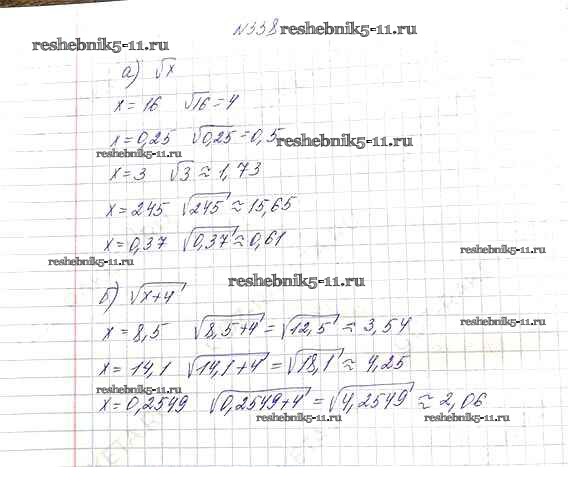 №338 reshebnik5-11.ru
reshebnik5-11.ru
а) √x
x=16 √16=4
x=0,25 √0,25=0,5
reshebnik5-11.ru
reshebnik5-11.ru
x=3 √3≈1,73
x=245 √245≈15,65
x=0,37 √0,37≈0,61
reshebnik5-11.ru
reshebnik5-11.ru
reshebnik5-11.ru
б) √x+4
x=8,5 √8,5+4=√12,5≈3,54
reshebnik5-11.ru
x=14,1 √14,1+4=√18,1≈4,25
reshebnik5-11.ru
x=0,2549 √0,2549+4=√4,2549≈2,06
reshebnik5-11.ru
reshebnik5-11.ru